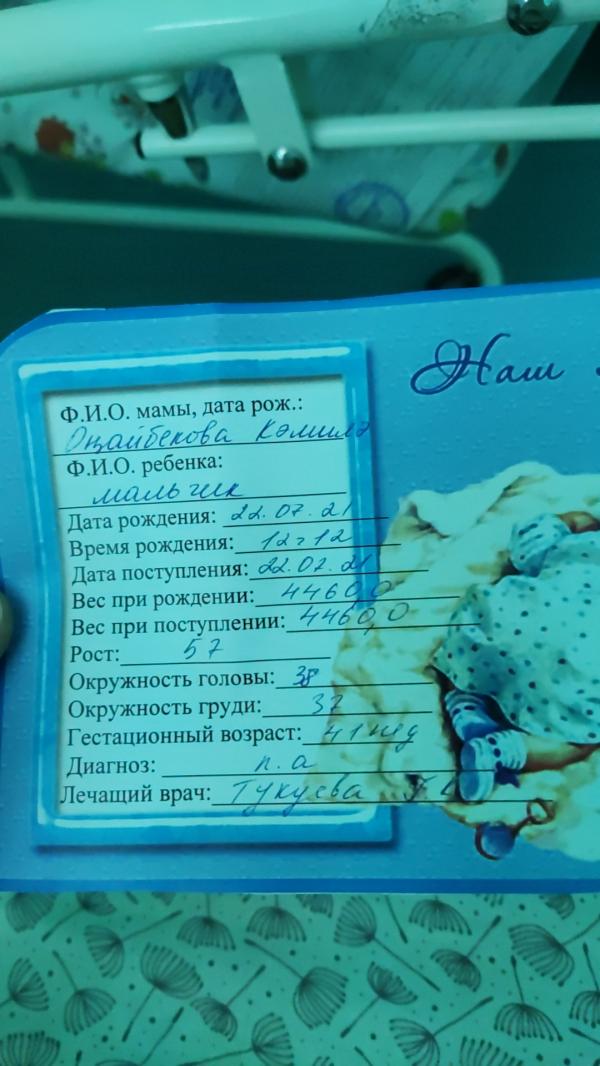 Наш
Ф.И.О. мамы, дата рож.:
Оңайбекова Кәмила
Ф.И.О. ребенка:
мальчик
Дата рождения: 22.07.21
Время рождения: 12ч12
Дата поступления: 22.07.21
Вес при рождении: 4460,0
Вес при поступлении: 4460,0
Рост: 57
Окружность головы: 38
Окружность груди: 37
Гестационный возраст: 41 нед
Диагноз: п.а
Лечащий врач: Тукуева